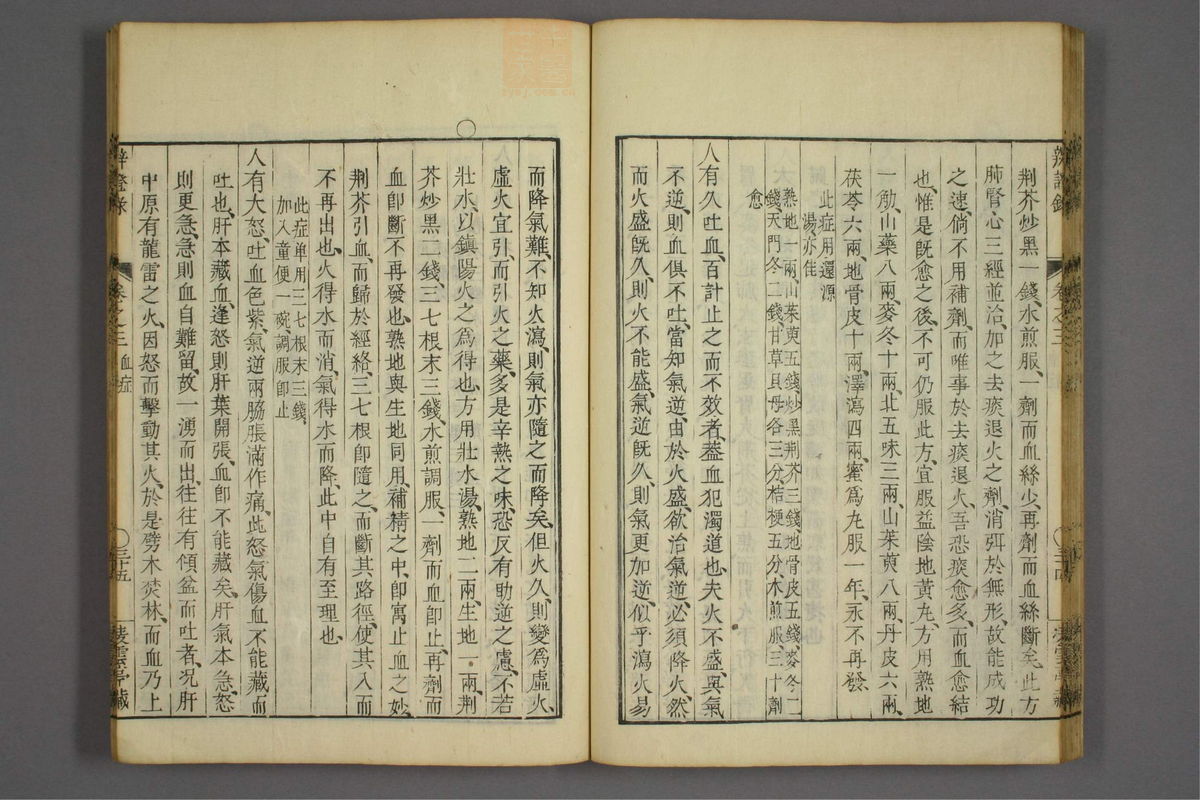 荆芥炒黑一錢、水煎服、一劑而血絲少、再劑而血絲斷矣、此方
肺腎心三經並治、加之去痰退火之劑、消弭於無形、故能成功
之速、倘不用補劑、而唯事於去痰退火、吾恐痰愈多、而血愈結
也、惟是旣愈之後、不可仍服此方、宜服益陰地黃丸、方用熟地
一觔、山藥八兩、麥冬十兩、北五味三兩、山茱萸八兩、丹皮六兩、
茯苓六兩、地骨皮十兩、澤瀉四兩、蜜爲丸、服一年、永不再發、
此症用還源
湯亦佳
熟地一兩、山茱萸五錢、炒黑荆芥三錢、地骨皮五錢、麥冬二
錢、天門冬二錢、甘草貝母各三分、桔梗五分、水煎服、三十劑
愈
人有久吐血、百計止之而不效者、蓋血犯濁道也、夫火不盛、與氣
不逆、則血俱不吐、當知氣逆、由於火盛、欲治氣逆、必須降火、然
而火盛旣久、則火不能盛、氣逆旣久、則氣更加逆、似乎瀉火易
辨證錄
卷之三
三十四
而降氣難、不知火瀉、則氣亦隨之而降矣、但火久則變爲虛火、
虛火宜引、而引火之藥、多是辛熱之味、恐反有助逆之慮、不若
壯水、以鎮陽火之爲得也、方用壯水湯、熟地二兩、生地一兩、荆
芥炒黑二錢、三七根末三錢、水煎調服、一劑而血卽止、再劑而
血卽斷、不再發也、熟地與生地同用、補精之中、卽寓止血之妙、
荆芥引血、而歸於經絡、三七根卽隨之、而斷其路徑、使其入而
不再出也、火得水而消、氣得水而降、此中自有至理也、
此症单用三七根末三錢、
加入童便一碗、調服卽止
人有大怒吐血、色紫氣逆、兩脇脹滿作痛、此怒氣傷血、不能藏而
吐也、肝本藏血、逢怒則肝葉開張、血卽不能藏矣、肝氣本急、怒
則更急、急則血自難留、故一湧而出、往往有傾盆而吐者、况肝
中原有龍雷之火、因怒而擊動其火、於是劈木焚林、而血乃上
辨證錄
卷之三
血症
三十五